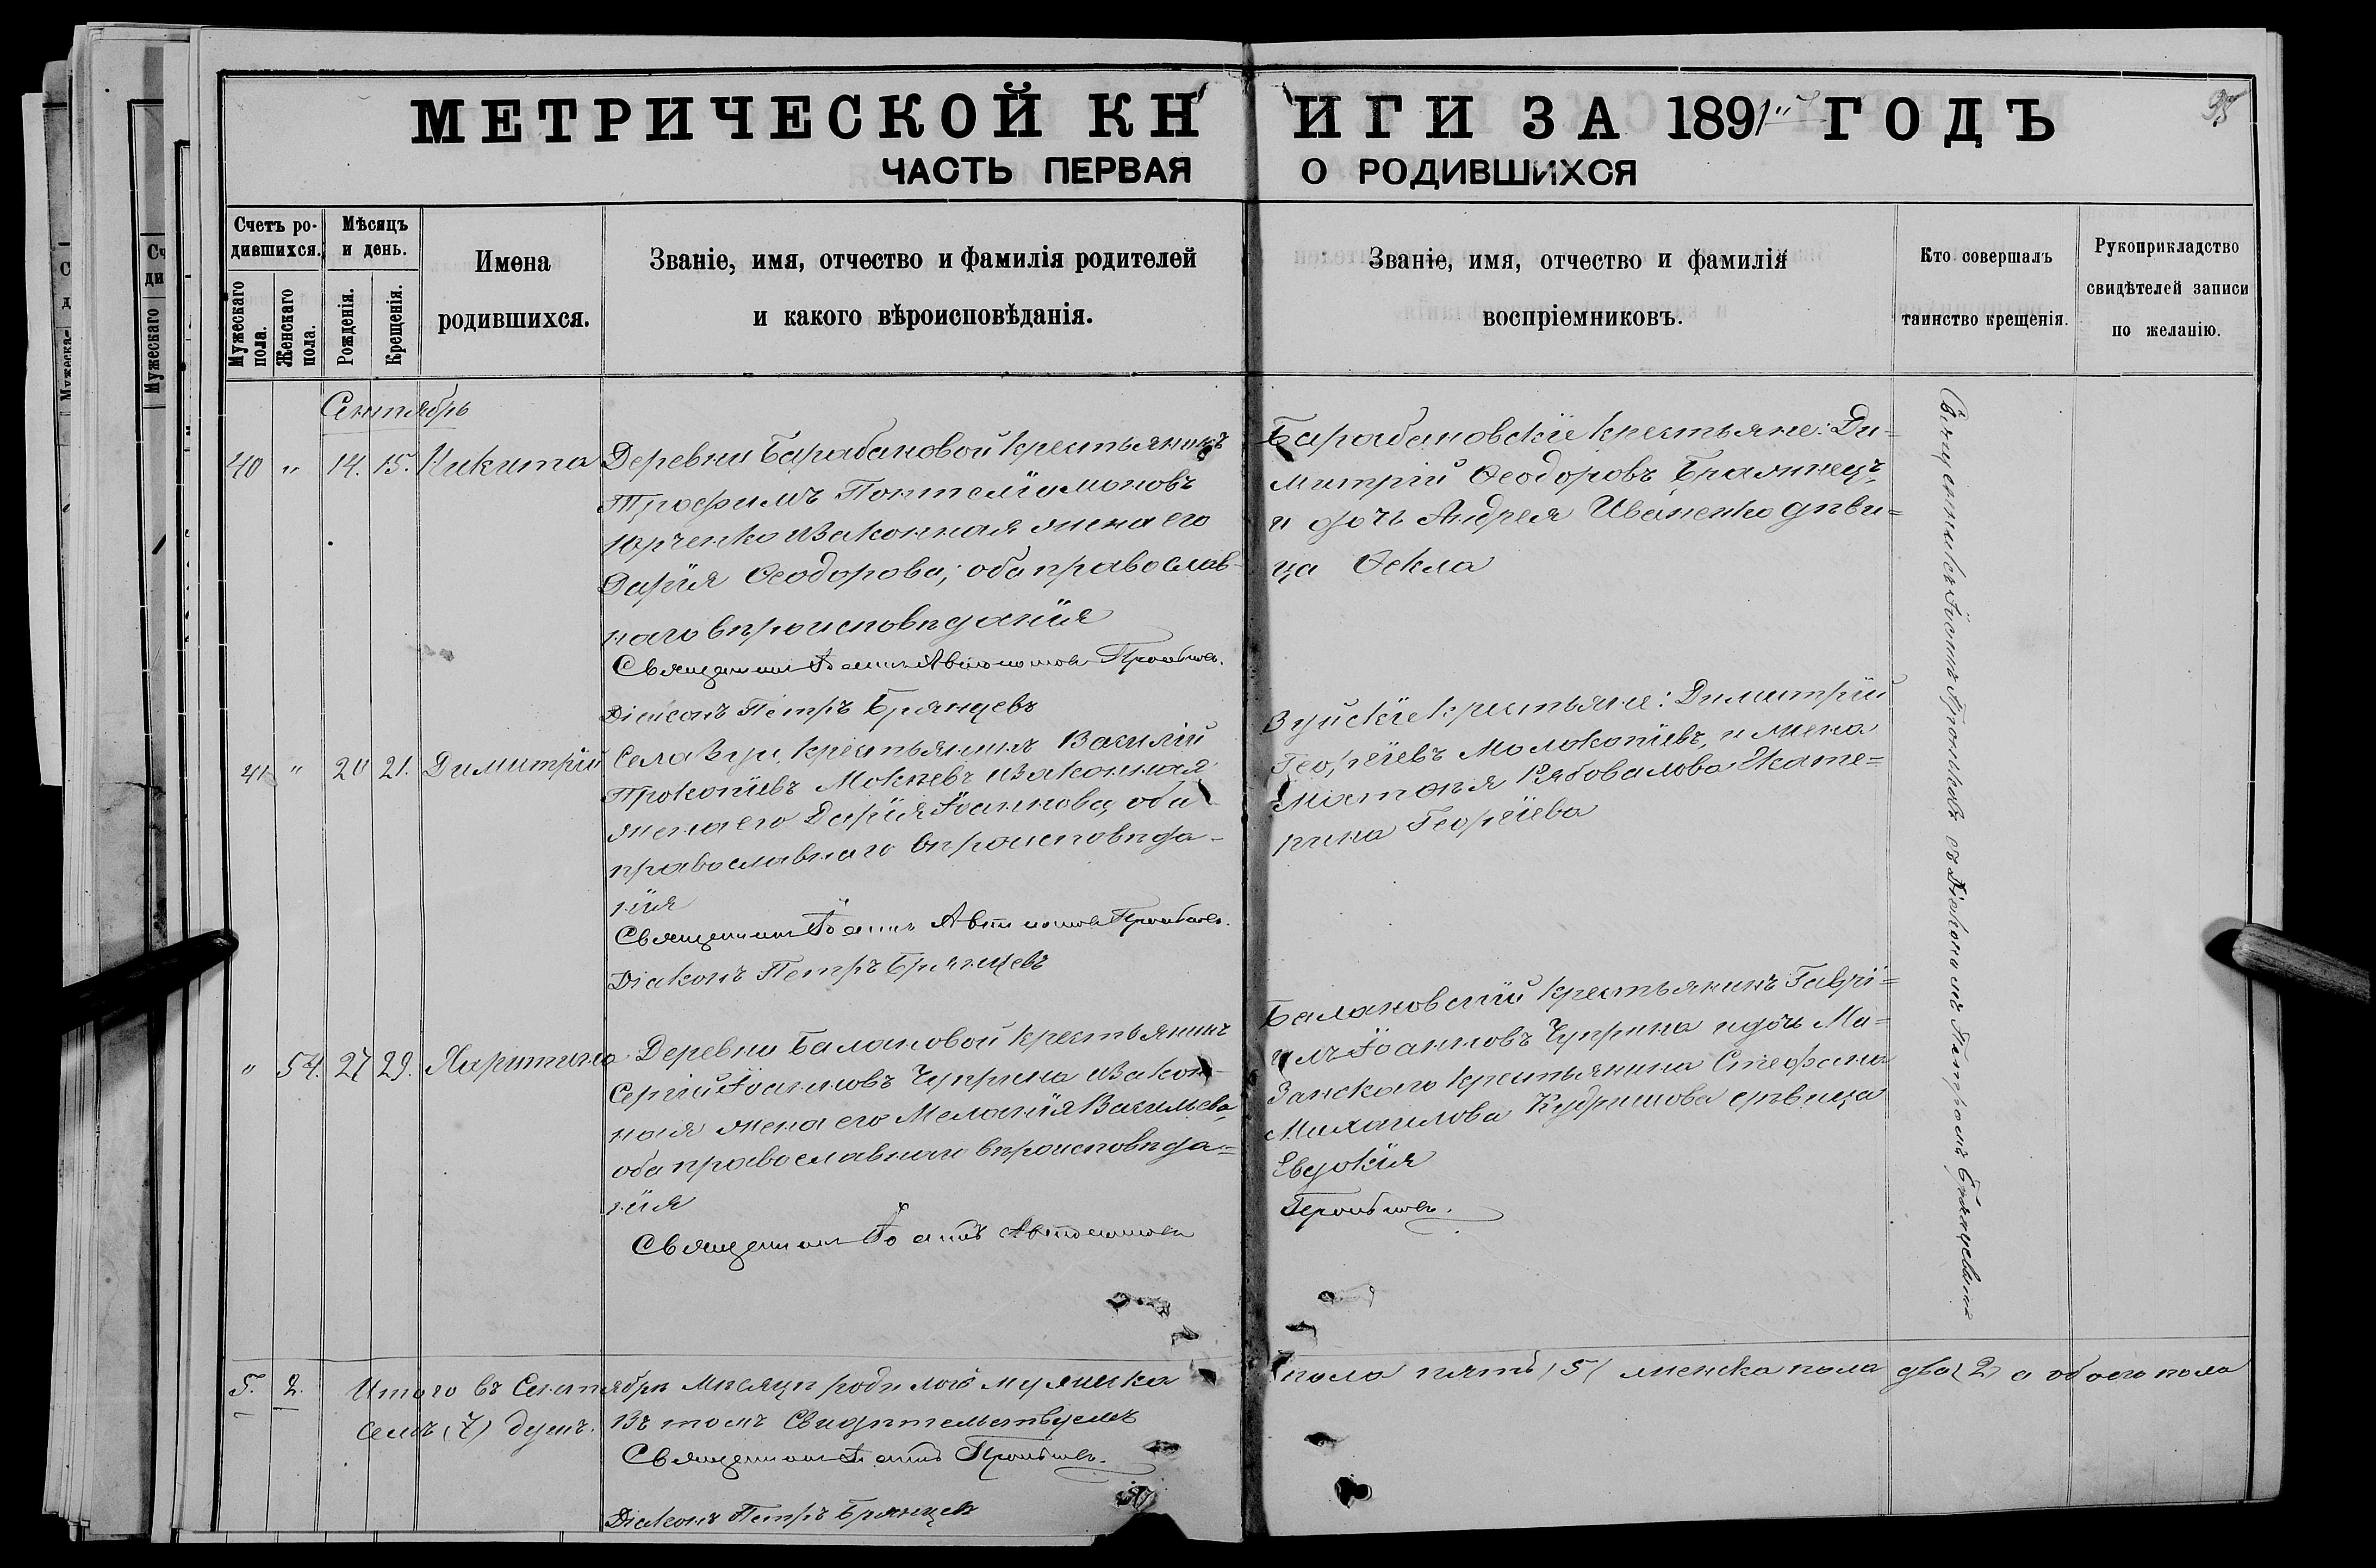 МЕТРИЧЕСКОЙ КНИГИ ЗА 1891 ГОДЪ
ЧАСТЬ ПЕРВАЯ О РОДИВШИХСЯ
Счетъ родившихся.
Мужескаго пола.
Женскаго пола.
Мѣсяцъ и день.
Рожденія.
Крещенія.
Имена
родившихся.
Званіе, имя, отчество и фамилія родителей
и какого вѣроисповѣданія.
Званіе, имя, отчество и фамилія
воспріемниковъ.
Кто совершалъ
таинство крещенія.
Рукоприкладство
свидѣтелей записи
по желанію.
Сентябрь
40 " 14. 15. Никита
Деревни Барабановой крестьянинъ
Трофимъ Понтелiимоновъ
Юрченко и законная жена его
Дарія Ѳеодорова; оба православ-
наго вѣроисповѣданія
Священникъ Іоаннъ
Діаконъ Петръ Брянцевъ
Барабановскіе крестьяне: Ди=
митрій Ѳеодоровъ
и дочь Андрея Иваненко дѣви=
ца Ѳекла
41 " 20 21. Димитрій
Села Зуи, крестьянинъ Василій
Прокопіевъ и законная
жена его Дарія Іоаннова, оба
православнаго вѣроисповѣда-
нія
Священникъ Іоаннъ
Діаконъ Петръ Брянцевъ
Зуйскіе крестьяне: Димитрій
Георгіевъ и жена
Екате=
рина Георгіева
" 54. 27 29. Харитина
Деревни Балановой крестьянинъ
Сергій Іоанновъ Чуприна и закон-
ная жена его Меланія Васильева,
оба православнаго вѣроисповѣда=
нія
Священникъ Іоаннъ
Балановскій крестьянинъ Гаврі=
илъ Іоанновъ Чуприна и дочь
крестьянина Стефана
Михаилова дѣвица
Евдокія
Священникъ Іоаннъ съ Діакономъ Петромъ Брянцевымъ
5. 2. Итого въ Сентябрѣ мѣсяцѣ родилось мужеска пола пять (5) женска пола два (2) а обоего пола
семь (7) душъ. Въ томъ Свидѣтельствуемъ
Священникъ Іоаннъ
Діаконъ Петръ Брянцевъ